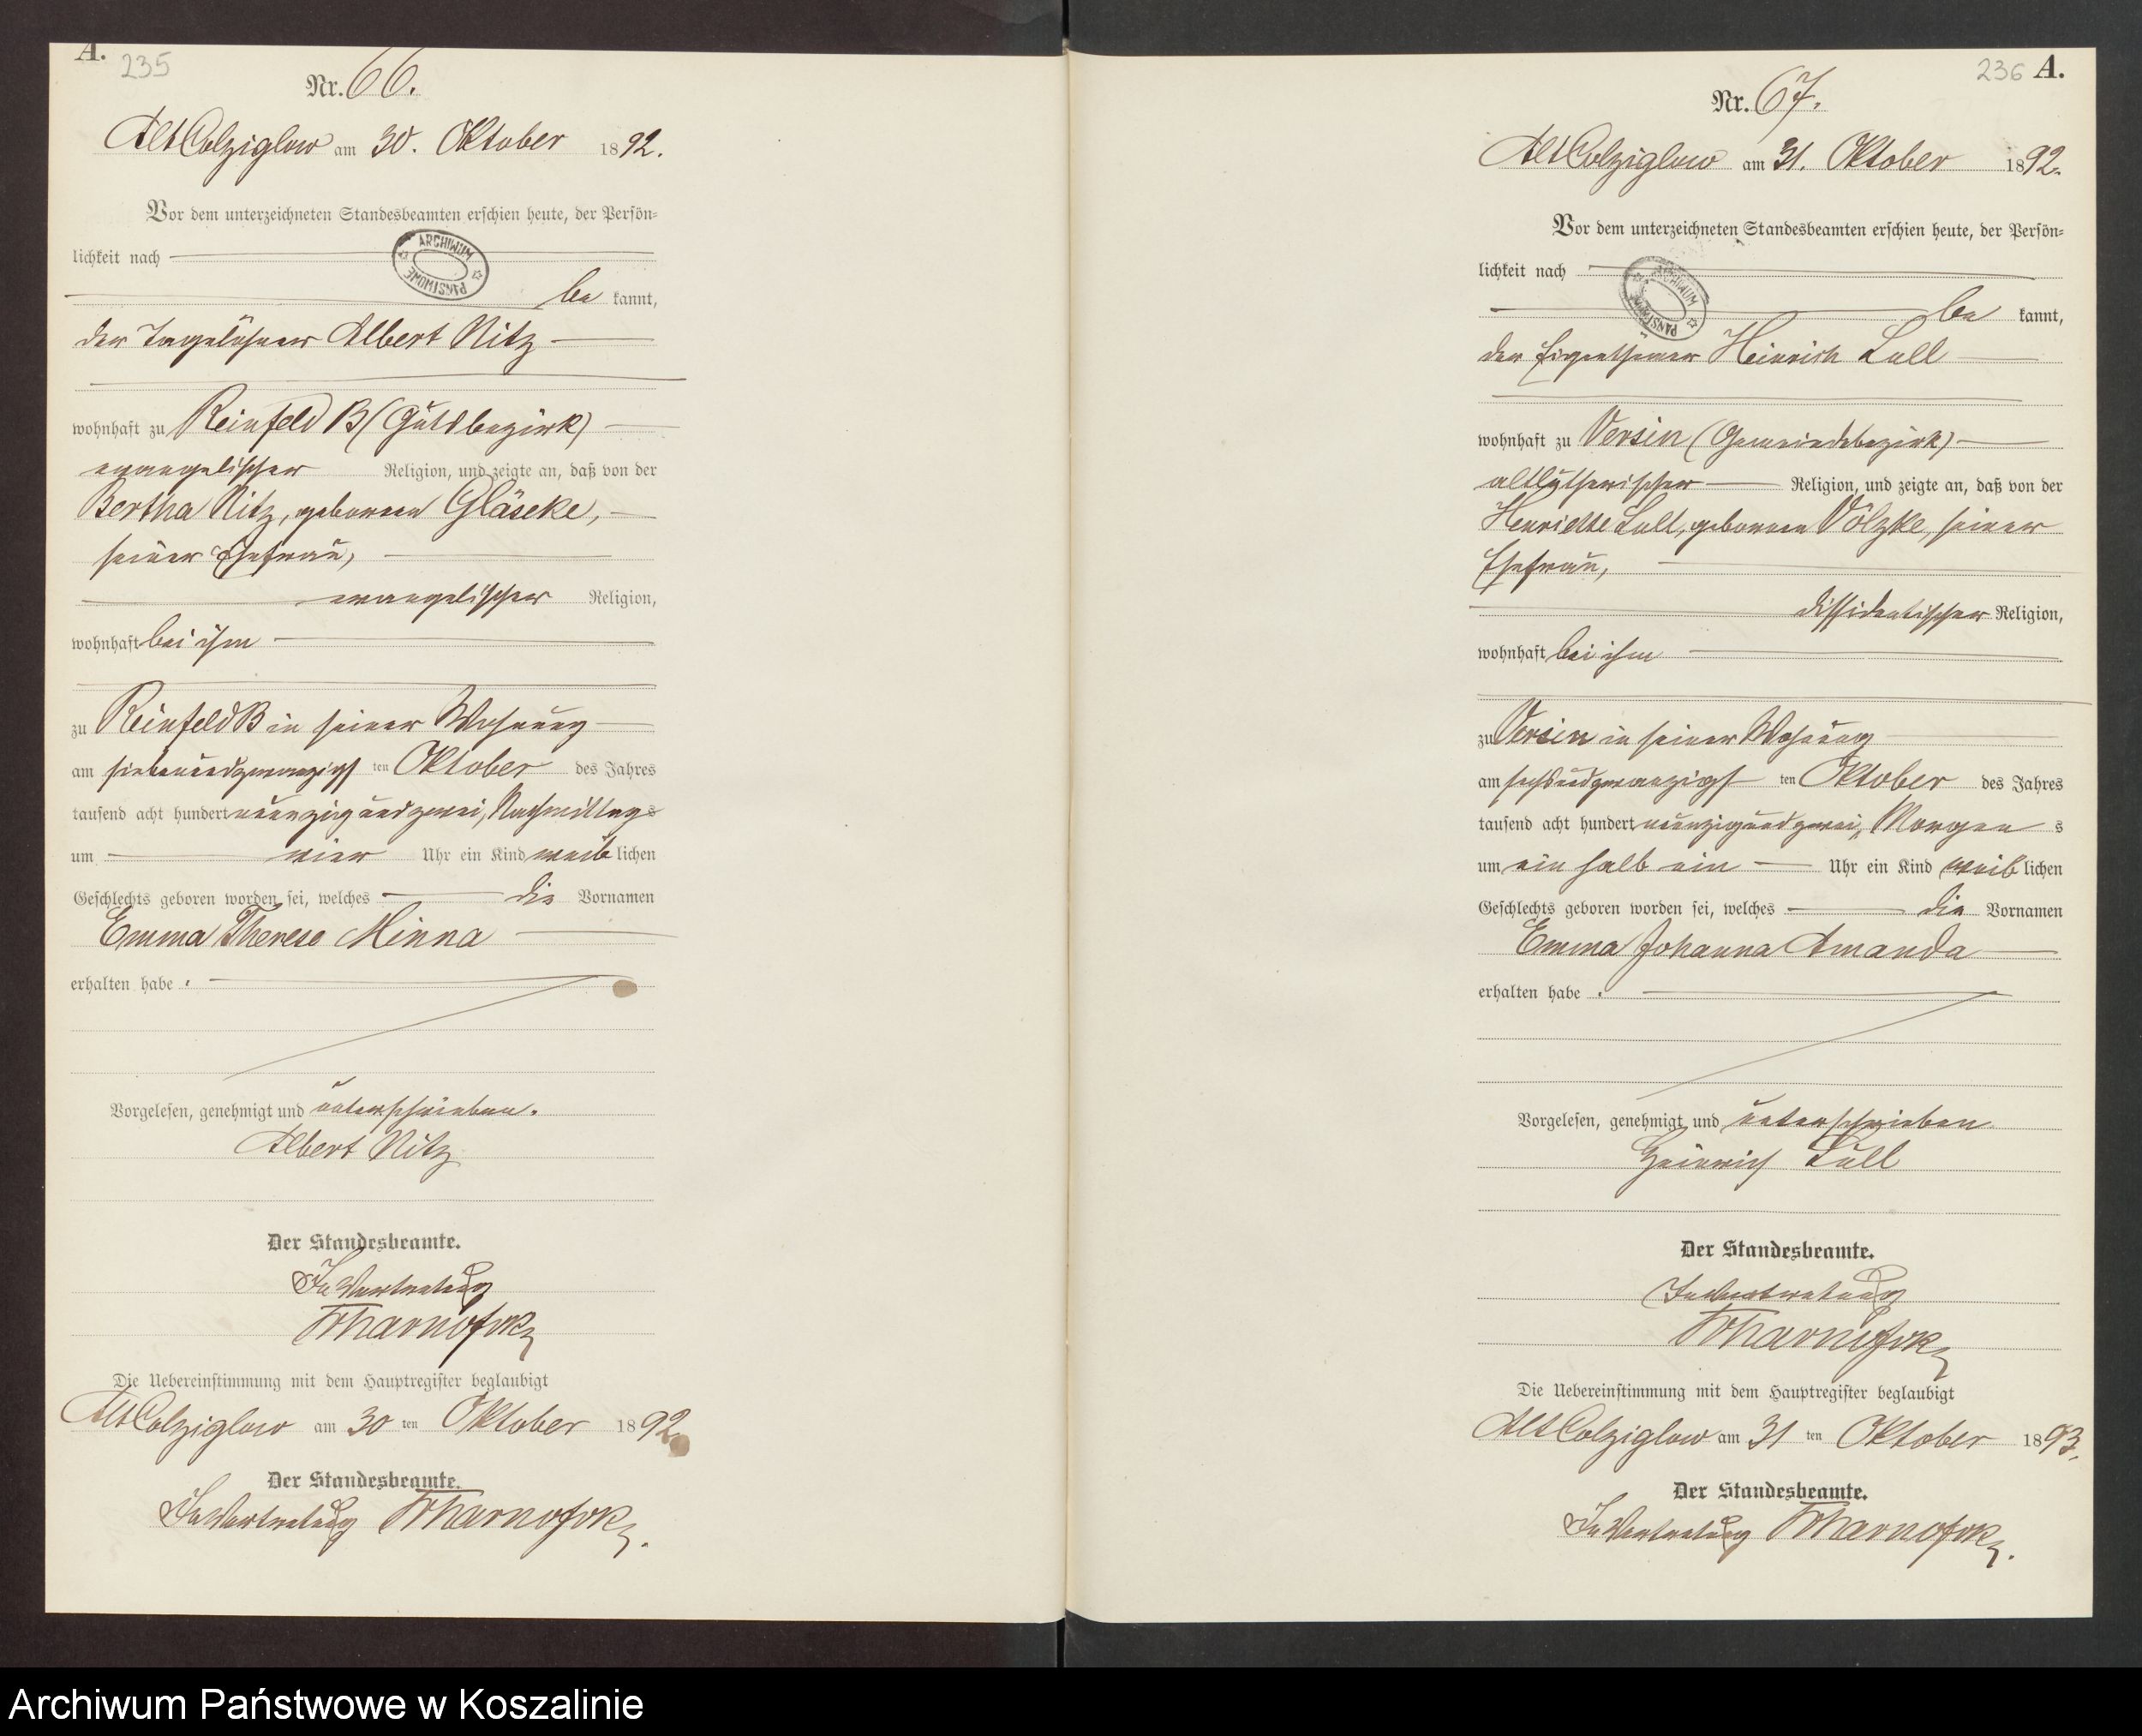 A. 235
Nr. 66.
Alt Colziglow am 30. Oktober 1892.
Vor dem unterzeichneten Standesbeamten erschien heute, der Persön-
lichkeit nach
ARCHIWUM PAŃSTWOWE
be kannt,
der Tagelöhner Albert Nitz
wohnhaft zu Reinfeld B (Gutsbezirk)
evangelischer Religion, und zeigte an, daß von der
Bertha Nitz, geborenen Gläseke,
seiner Ehefrau,
evangelischer Religion,
wohnhaft bei ihm
zu Reinfeld B in seiner Wohnung
am siebenundzwanzigs ten Oktober des Jahres
tausend acht hundert neunzig und zwei, Nachmittags
um vier Uhr ein Kind weib lichen
Geschlechts geboren worden sei, welches die Vornamen
Emma Therese Minna
erhalten habe.
Vorgelesen, genehmigt und unterschrieben.
Albert Nitz
Der Standesbeamte.
In Vertretung
Die Uebereinstimmung mit dem Hauptregister beglaubigt
Alt Colziglow am 30 ten Oktober 1892.
Der Standesbeamte.
In Vertretung
236 A.
Nr. 67.
Alt Colziglow am 31. Oktober 1892.
Vor dem unterzeichneten Standesbeamten erschien heute, der Persön-
lichkeit nach
ARCHIWUM PAŃSTWOWE
be kannt,
der Eigenthümer Heinrich Lull
wohnhaft zu Versin (Gemeindebezirk)
altlutherischer Religion, und zeigte an, daß von der
Henriette Lull, geborenen Völzke, seiner
Ehefrau,
dissidentischer Religion,
wohnhaft bei ihm
zu Versin in seiner Wohnung
am sechsundzwanzigs ten Oktober des Jahres
tausend acht hundert neunzig und zwei, Morgen s
um ein halb ein Uhr ein Kind weib lichen
Geschlechts geboren worden sei, welches die Vornamen
Emma Johanna Amanda
erhalten habe.
Vorgelesen, genehmigt und unterschrieben
Heinrich Lull
Der Standesbeamte.
In Vertretung
Die Uebereinstimmung mit dem Hauptregister beglaubigt
Alt Colziglow am 31 ten Oktober 1893.
Der Standesbeamte.
In Vertretung
Archiwum Państwowe w Koszalinie